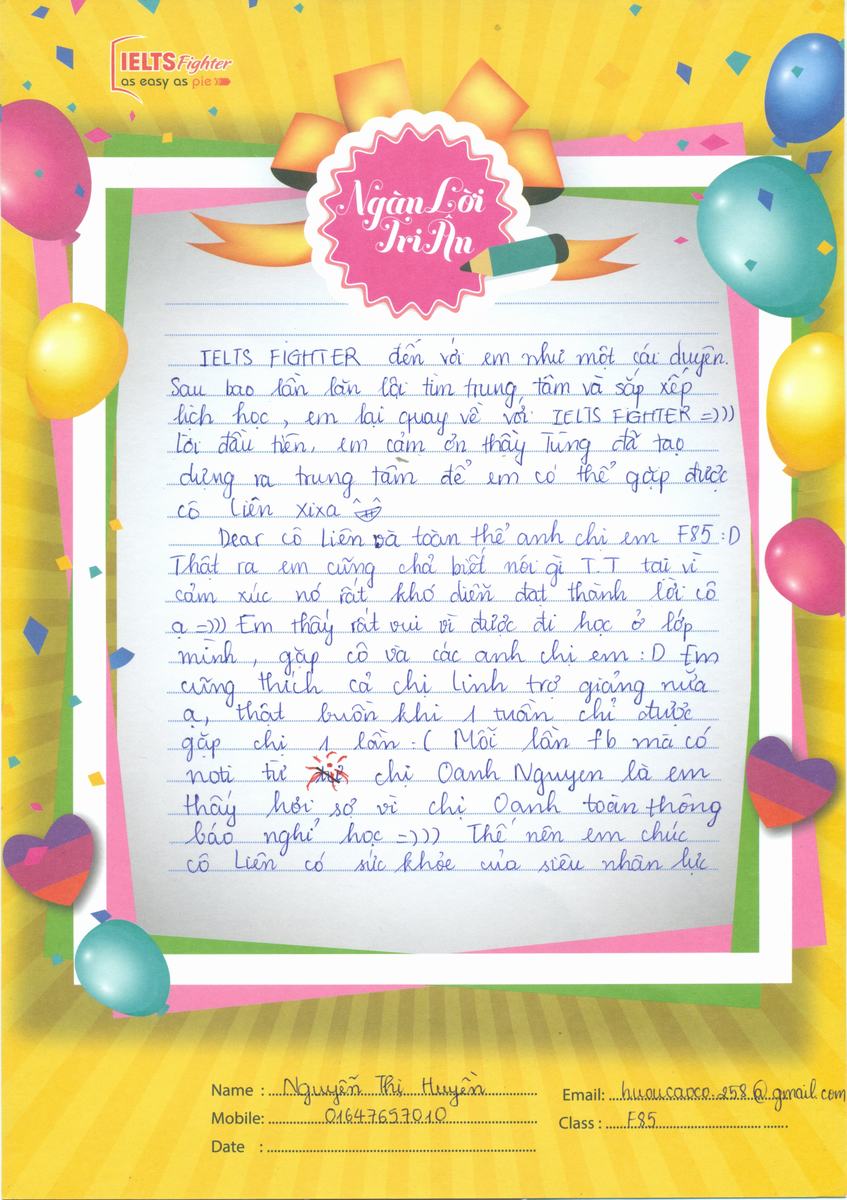 IELTS Fighter
as easy as pie
Ngàn Lời
Tri Ân
IELTS FIGHTER đến với em như một cái duyên.
Sau bao lần lăn lội tìm trung tâm và sắp xếp
lịch học, em lại quay về với IELTS FIGHTER =)))
Lời đầu tiên, em cảm ơn thầy Tùng đã tạo
dựng ra trung tâm để em có thể gặp được
cô Liên xixa
Dear cô Liên và toàn thể anh chị em F85 :D
Thật ra em cũng chả biết nói gì T.T tại vì
cảm xúc nó rất khó diễn đạt thành lời cô
ạ =))) Em thấy rất vui vì được đi học ở lớp
mình, gặp cô và các anh chị em :D Em
cũng thích cả chị Linh trợ giảng nữa
ạ, thật buồn khi 1 tuần chỉ được
gặp chị 1 lần :( Mỗi lần fb mà có
noti từ chị Oanh Nguyen là em
thấy hơi sợ vì chị Oanh toàn thông
báo nghỉ học =))) Thế nên em chúc
cô Liên có sức khỏe của siêu nhân lực
Name : Nguyễn Thị Huyền Email: huoucaoco.258@gmail.com
Mobile: 01647657010 Class : F85
Date :